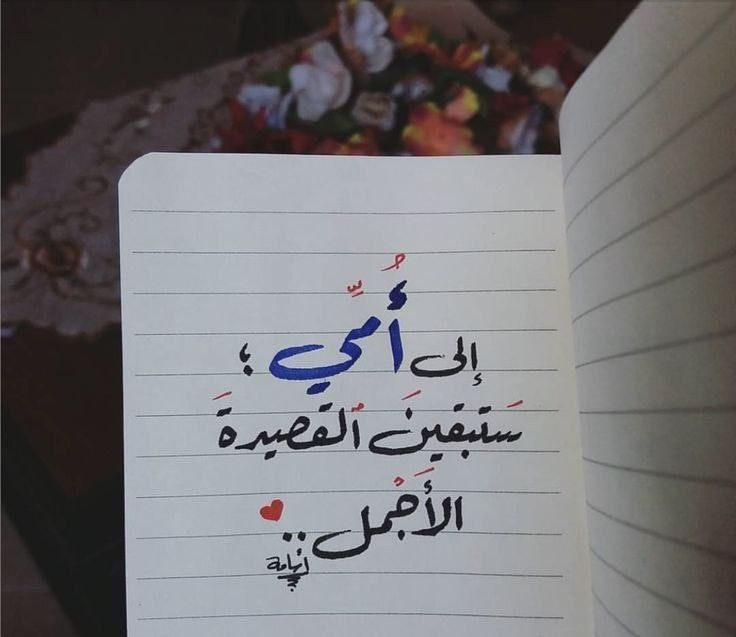 إلى أُمِّي ؛
سَتبقينَ ٱلقصيدةَ
الأَجْمل ..